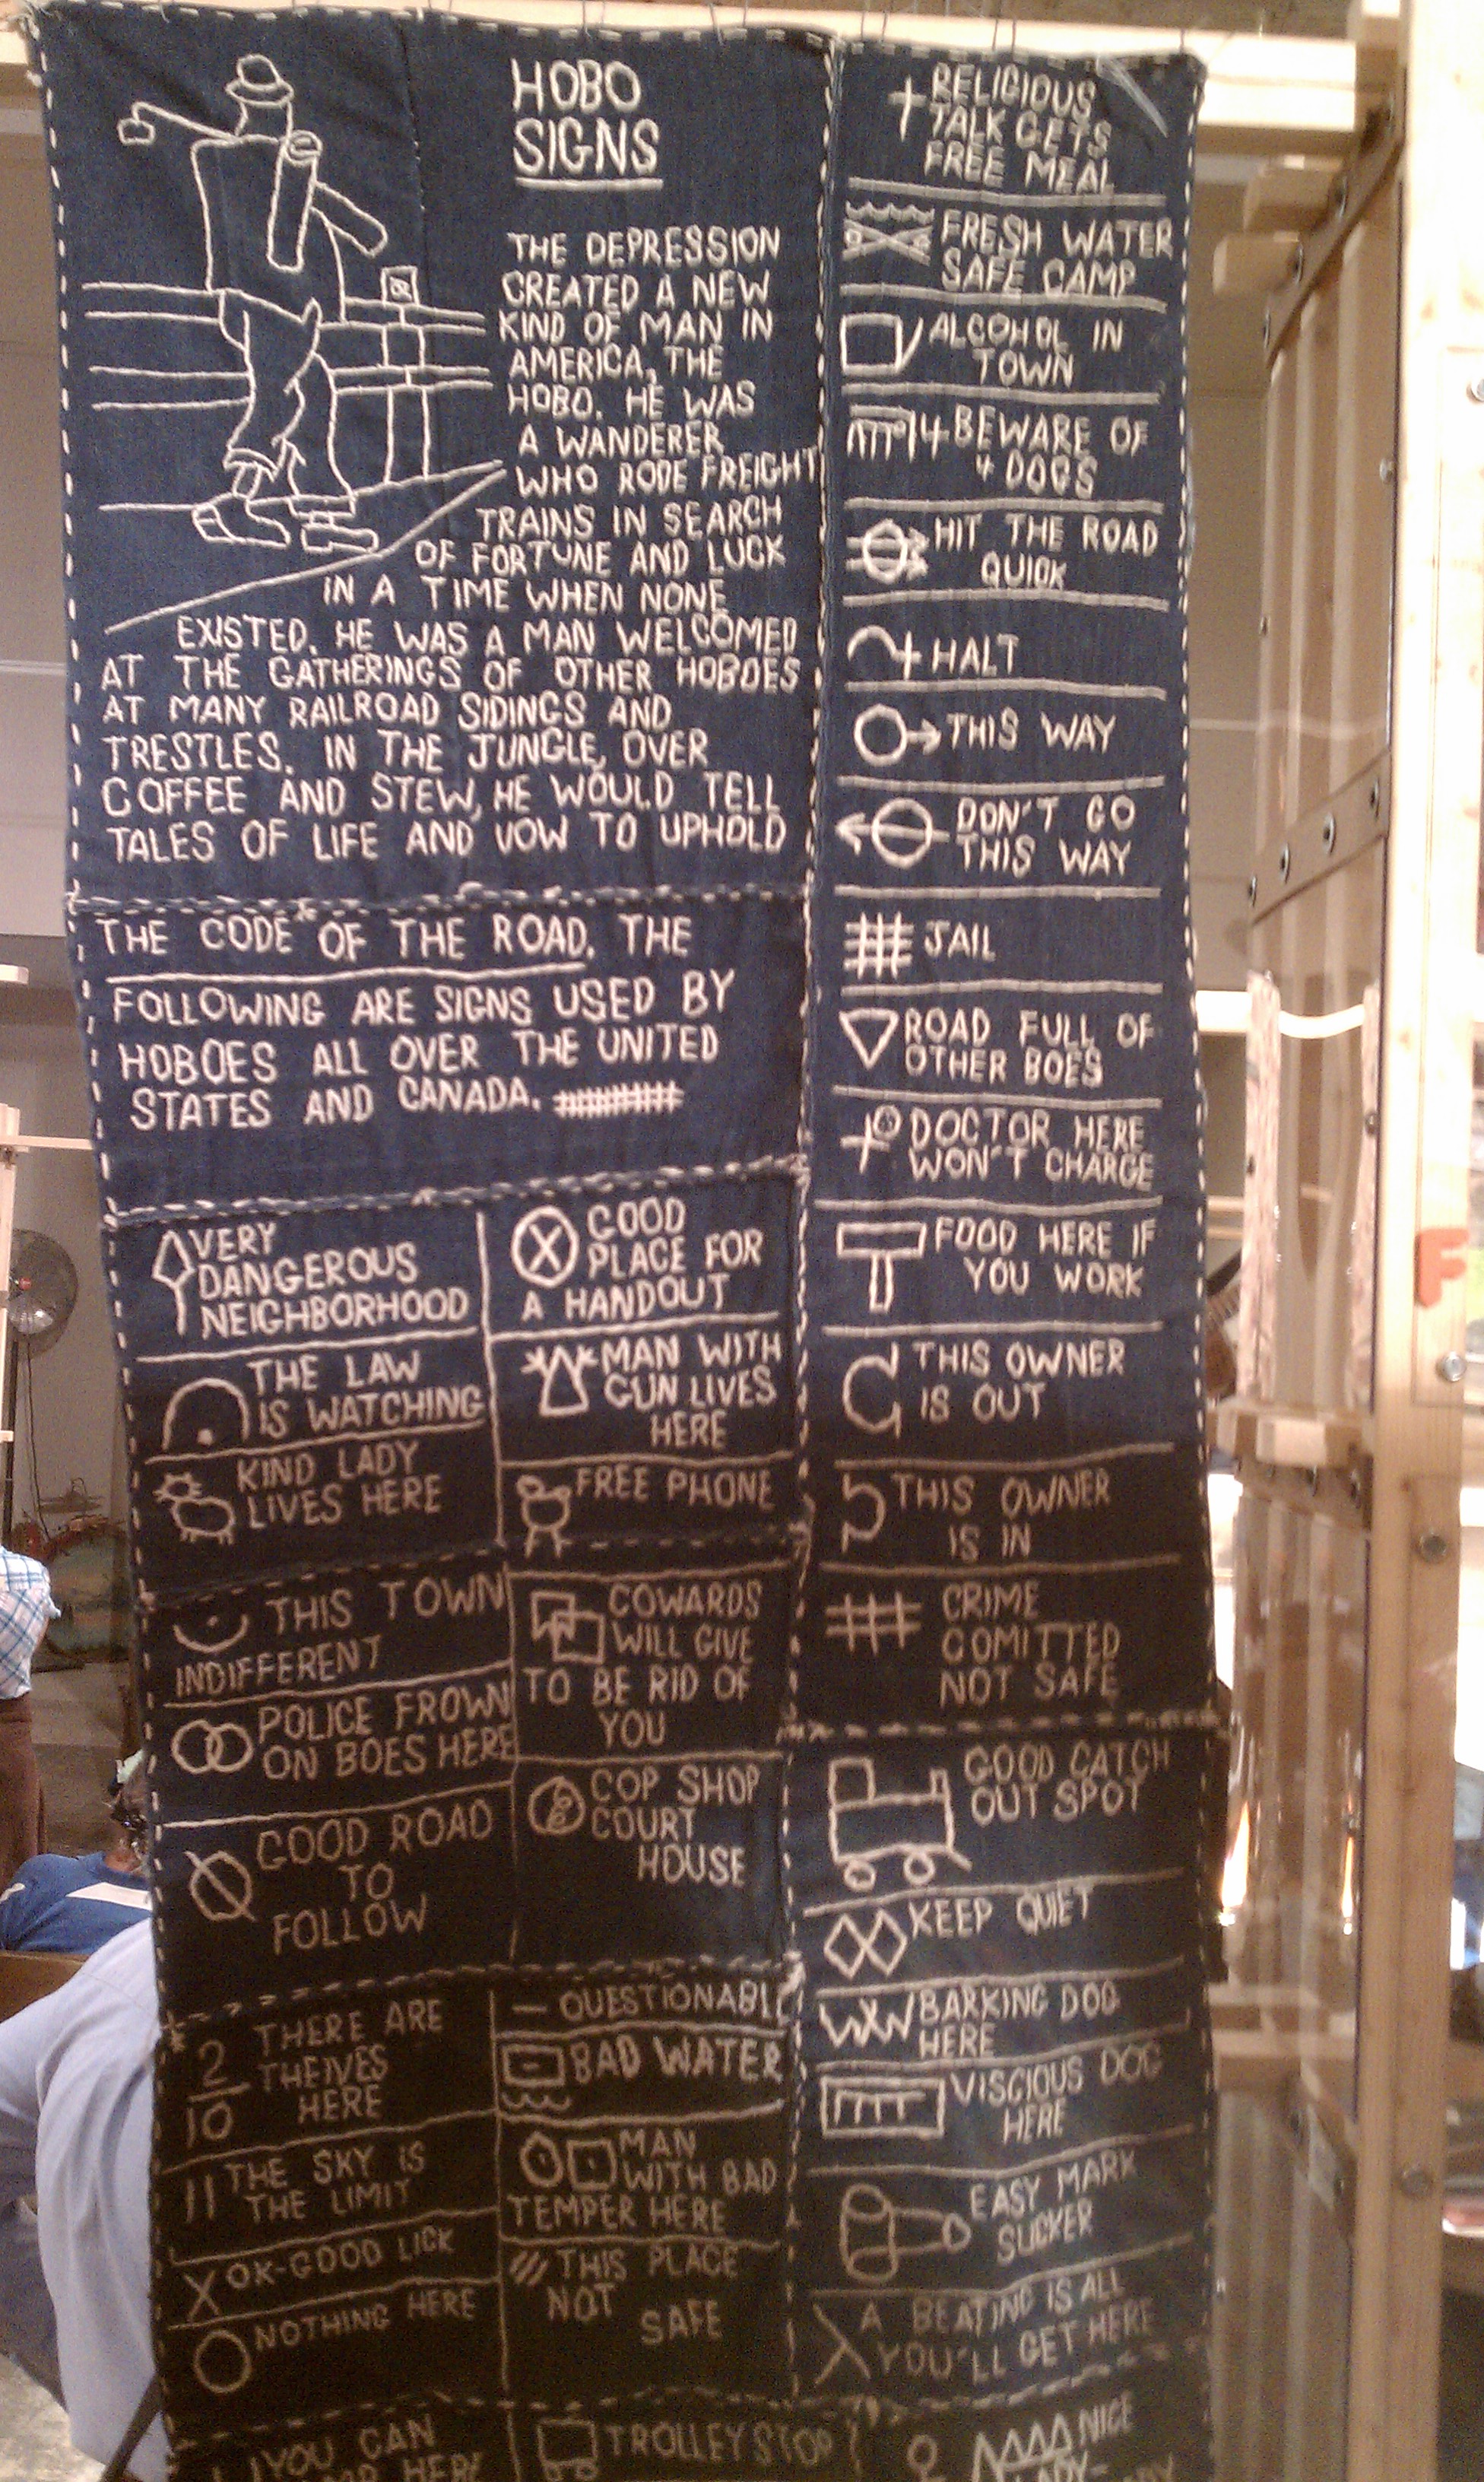 HOBO
SIGNS
THE DEPRESSION
CREATED A NEW
KIND OF MAN IN
AMERICA, THE
HOBO. HE WAS
A WANDERER
WHO RODE FREIGHT
TRAINS IN SEARCH
OF FORTUNE AND LUCK
IN A TIME WHEN NONE
EXISTED. HE WAS A MAN WELCOMED
AT THE GATHERINGS OF OTHER HOBOES
AT MANY RAILROAD SIDINGS AND
TRESTLES. IN THE JUNGLE, OVER
COFFEE AND STEW, HE WOULD TELL
TALES OF LIFE AND VOW TO UPHOLD
THE CODE OF THE ROAD. THE
FOLLOWING ARE SIGNS USED BY
HOBOES ALL OVER THE UNITED
STATES AND CANADA.
VERY
DANGEROUS
NEIGHBORHOOD
THE LAW
IS WATCHING
KIND LADY
LIVES HERE
THIS TOWN
INDIFFERENT
POLICE FROWN
ON BOES HERE
GOOD ROAD
TO
FOLLOW
2
10
THERE ARE
THEIVES
HERE
THE SKY IS
THE LIMIT
OK-GOOD LICK
NOTHING HERE
YOU CAN
HERE
GOOD
PLACE FOR
A HANDOUT
MAN WITH
GUN LIVES
HERE
FREE PHONE
COWARDS
WILL GIVE
TO BE RID OF
YOU
COP SHOP
COURT
HOUSE
QUESTIONABLE
BAD WATER
MAN
WITH BAD
TEMPER HERE
THIS PLACE
NOT
SAFE
TROLLEY STOP
RELIGIOUS
TALK GETS
FREE MEAL
FRESH WATER
SAFE CAMP
ALCOHOL IN
TOWN
14 BEWARE OF
4 DOGS
HIT THE ROAD
QUICK
HALT
THIS WAY
DON'T GO
THIS WAY
JAIL
ROAD FULL OF
OTHER BOES
DOCTOR HERE
WON'T CHARGE
FOOD HERE IF
YOU WORK
THIS OWNER
IS OUT
THIS OWNER
IS IN
CRIME
COMITTED
NOT SAFE
GOOD CATCH
OUT SPOT
KEEP QUIET
BARKING DOG
HERE
VISCIOUS DOG
HERE
EASY MARK
SUCKER
A BEATING IS ALL
YOU'LL GET HERE
NICE
LADY-
F